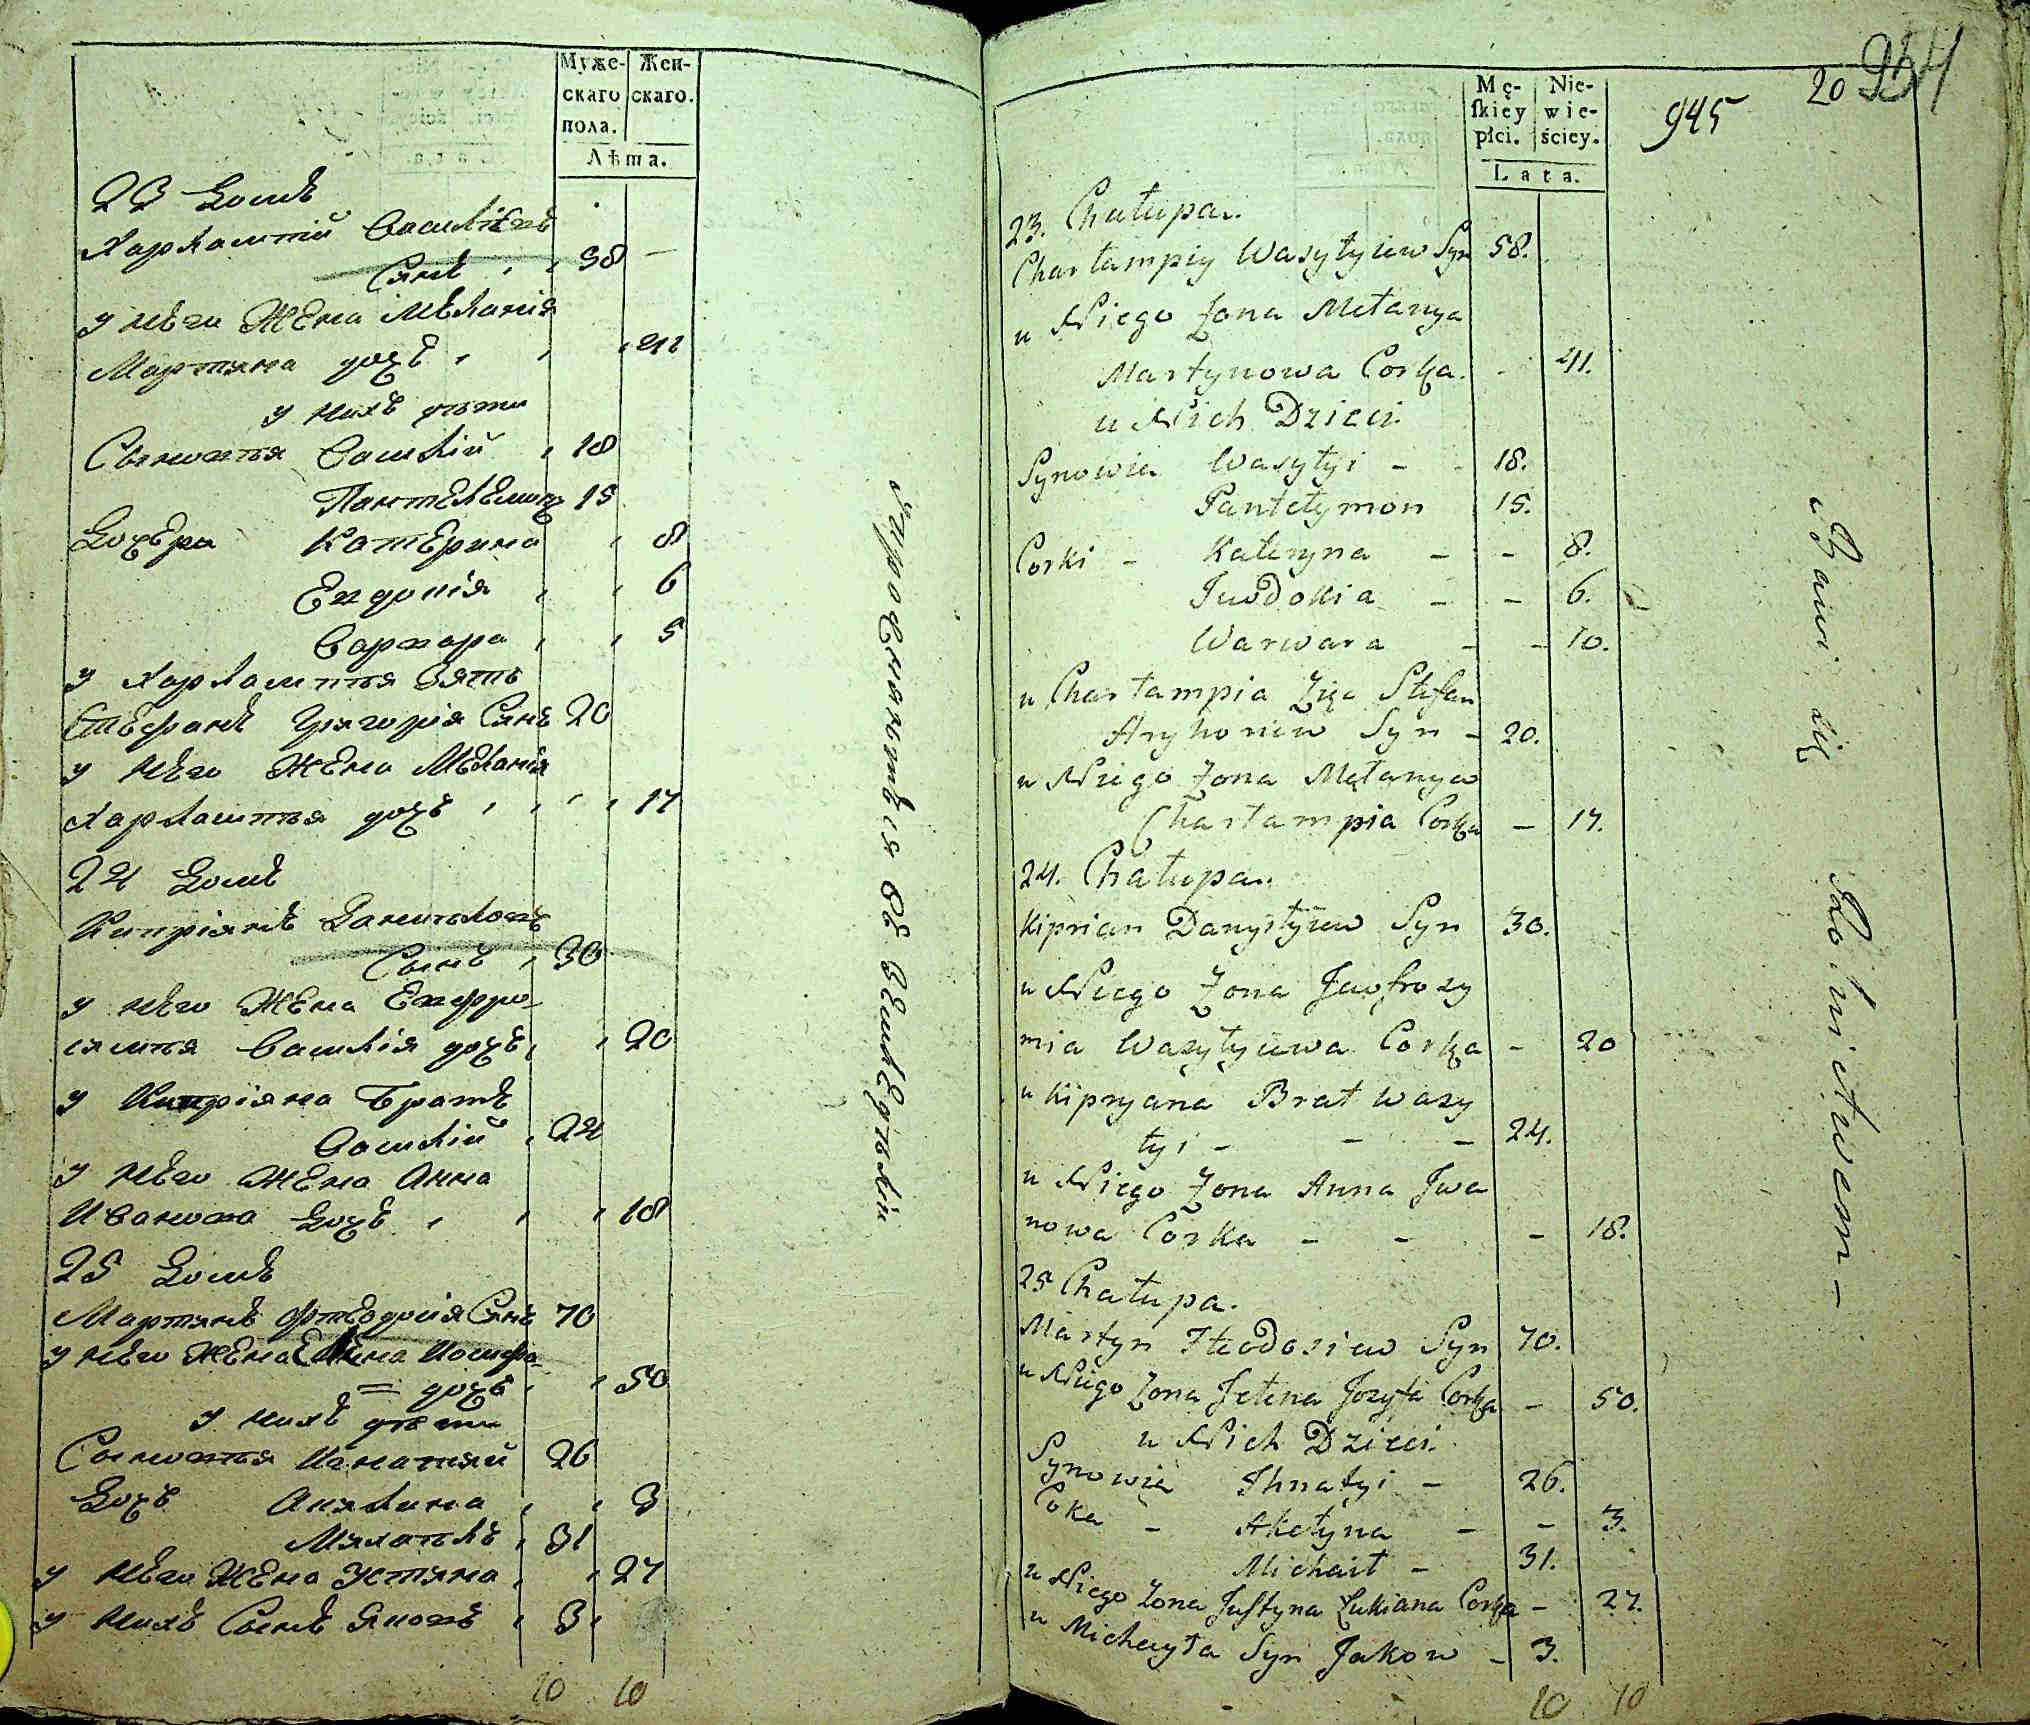 Муже-
скаго
пола.
Жен-
скаго.
Лѣта.
23 Домъ
Харлампий Василіевъ
Сынъ 38 —
у него Жена Меланія
Мартина дочь 41
у нихъ дѣти
Сыновья Василій 18
Пантелемонъ 15
Дочери Катерина 8
Евдокія 6
Варвара 5
у Харлампія Зять
Стефанъ Григорія Сынъ 20
у него Жена Меланія
Харлампія дочь 17
24 Домъ
Кипріянъ Даниловъ
Сынъ 30
у него Жена Евфро-
симія Василія дочь 20
у Кипріяна Братъ
Василій 24
у него Жена Анна
Иванова Дочь 18
25 Домъ
Мартинъ Фтеодосія Сынъ 70
у него Жена Елена Иосифа
= дочь 50
у нихъ дѣти
Сыновья Игнатий 26
Дочь Акилина 3
Михаилъ 31
у него Жена Устина 27
у нихъ Сынъ Яковъ 3
10 10
въ земледѣліи
20 954
945
Mę-
skiey
płci.
Nie-
wie-
ściey.
Lata.
23. Chałupa.
Charłampiy Wasylyiew Syn 58.
u Niego Żona Mełanya
Martynowa Corka. - 41.
u Nich Dzieci.
Synowia Wasyłyi - - 18.
Pantełymon 15.
Corki - Kateryna - - 8.
Juwdokia - - 6.
Warwara - - 10.
u Charłampia Zięc Stefan
Hryhoriew Syn - 20.
u Niego Żona Mełanya
Charłampia Corka - 17.
24. Chałupa.
Kiprian Danyłyiew Syn 30.
u Niego Żona Jewfrozy
mia Wasyłyiewa Corka - 20
u Kipryana Brat Wasy
łyi - - - 24.
u Niego Żona Anna Jwa
nowa Corka - - - 18.
25 Chałupa.
Martyn Fteodosiew Syn 70.
u Niego Żona Jełena Jozyfa Corka - 50.
u Nich Dzieci.
Synowia Ihnatyi - 26.
Coka - Akełyna - - 3.
Michaił - 31.
u Niego Żona Justyna Łukiana Corka - 27.
u Michayła Syn Jakow - 3.
10 10
Bawi się Rolnictwem -